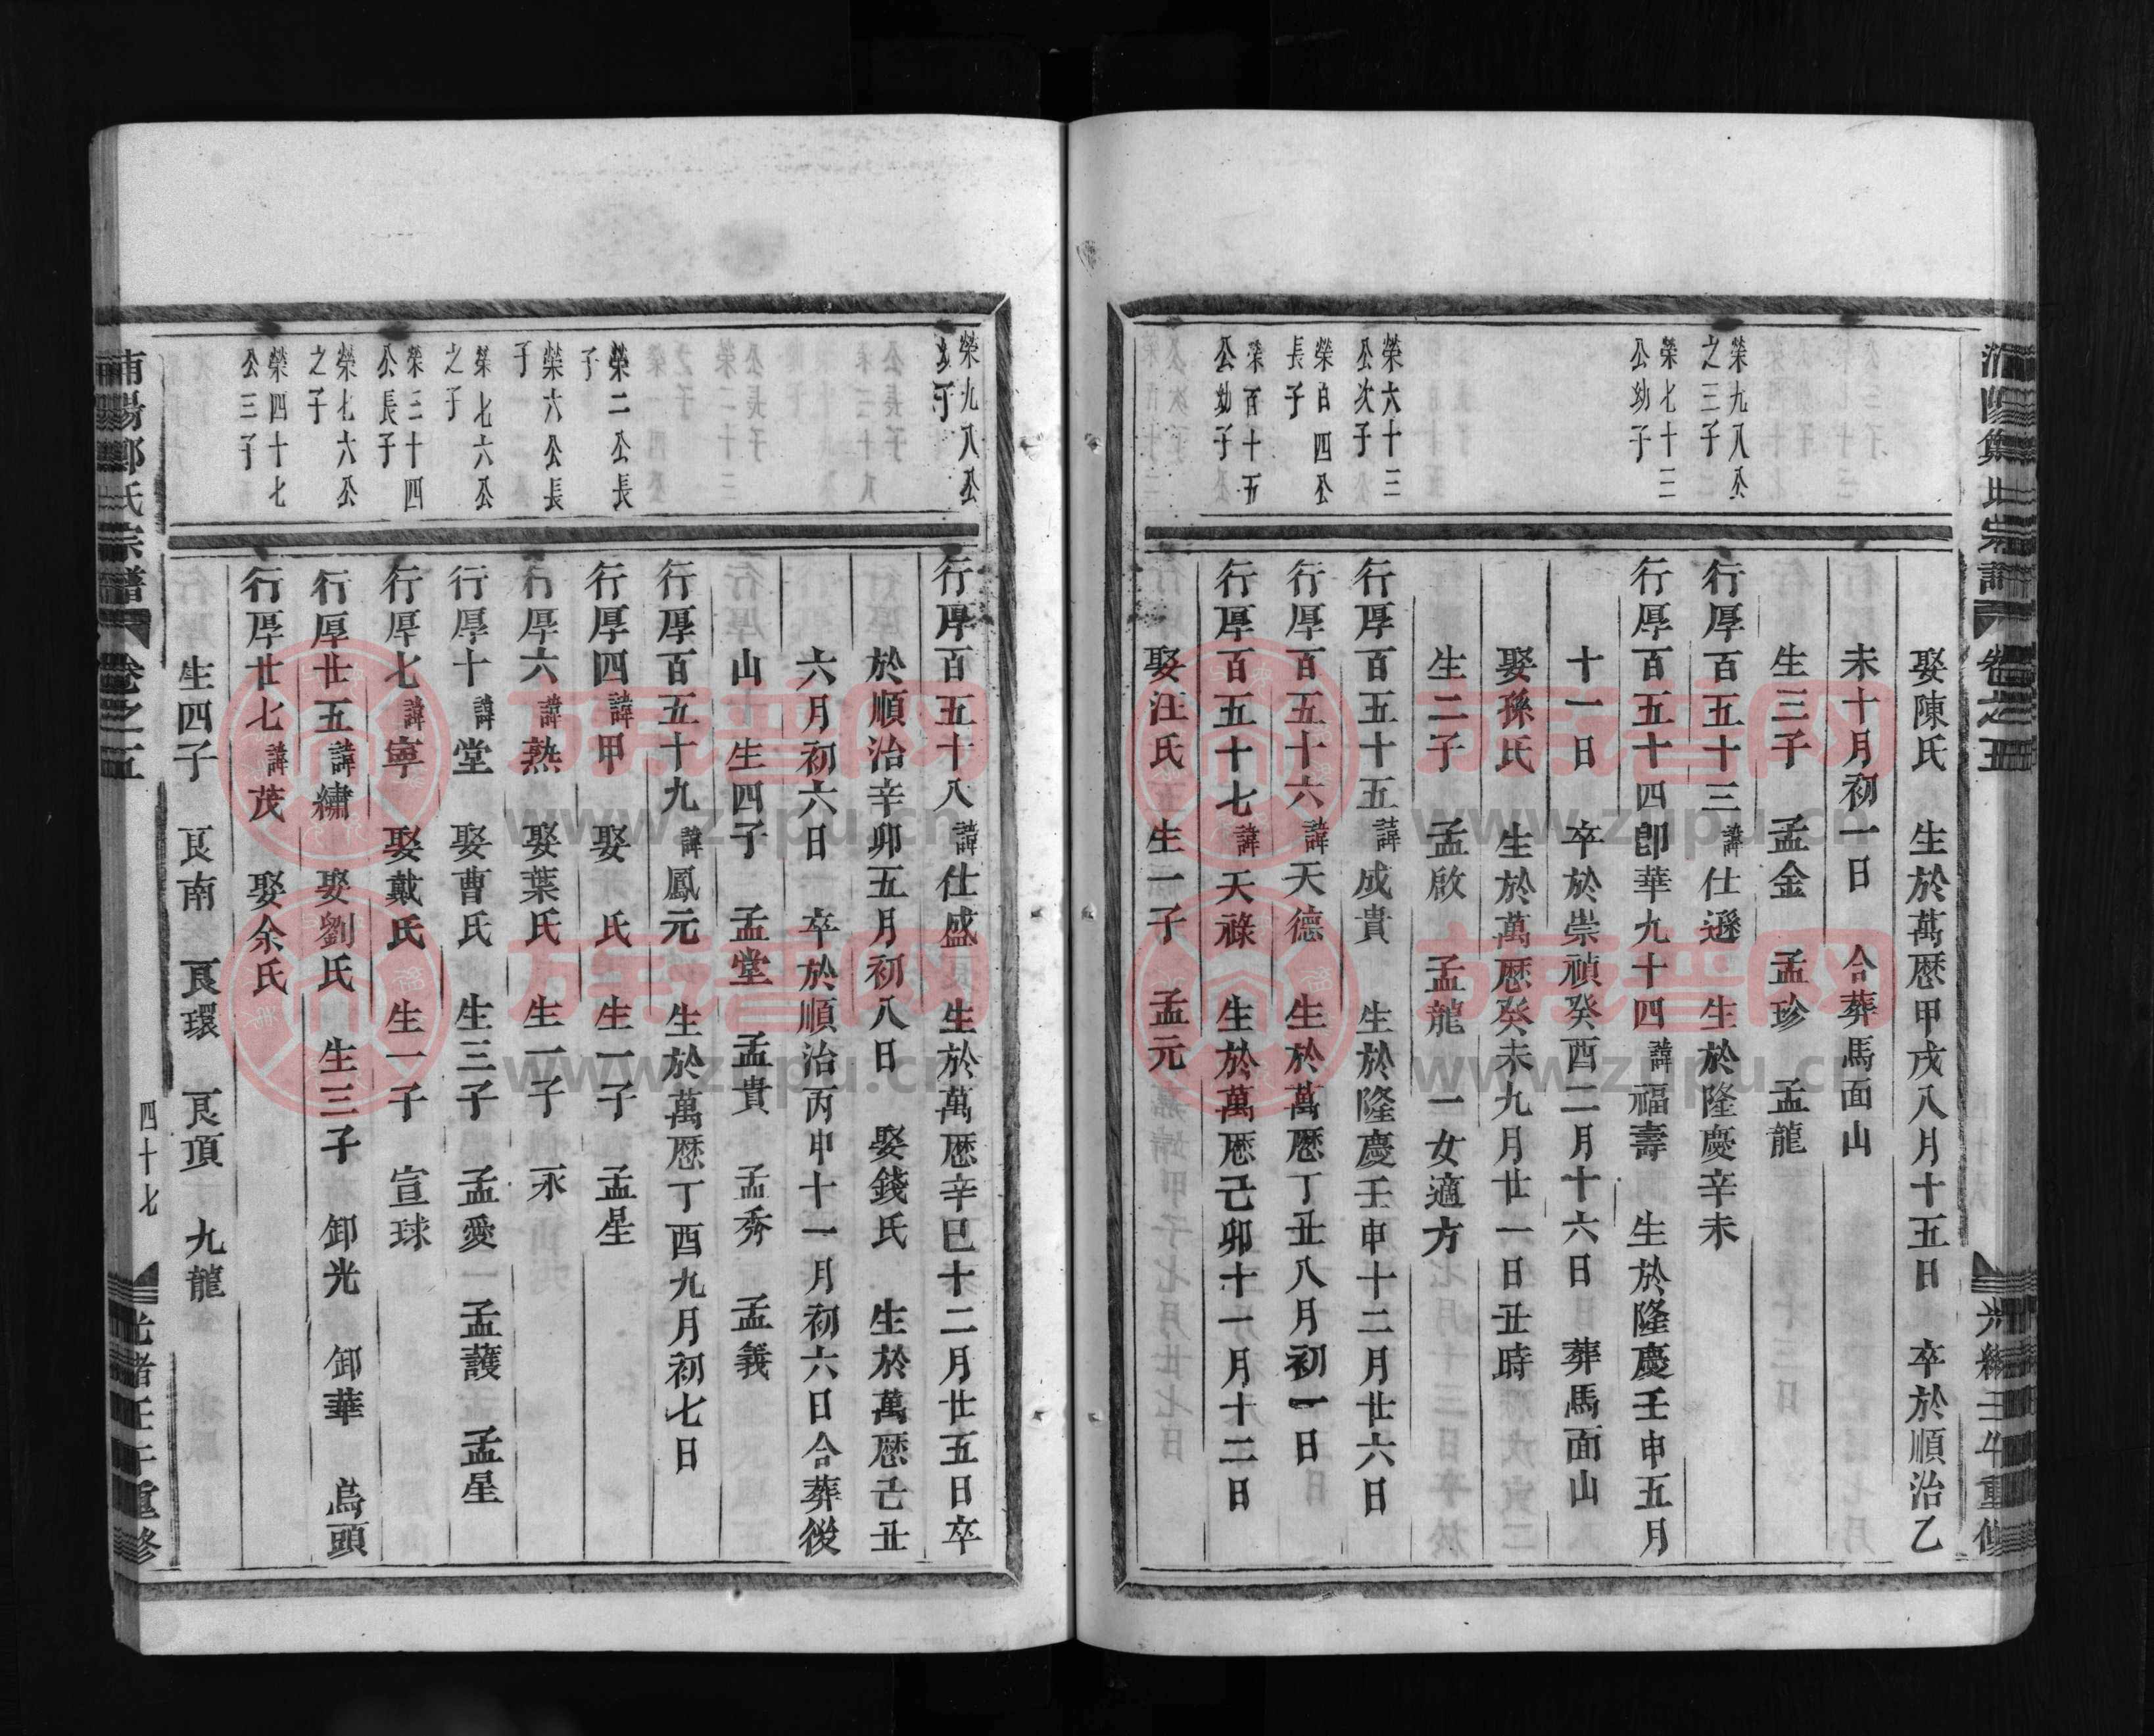 娶陳氏　生於萬歷甲戌八月十五日　卒於順治乙
未十月初一日　合葬馬面山
生三子　孟金　孟珍　孟龍
榮九八公之三子
行厚百五十三諱仕遜　生於隆慶辛未
榮七十三公幼子
行厚百五十四卽華九十四諱福壽　生於隆慶壬申五月
十一日　卒於崇禎癸酉二月十六日　葬馬面山
娶孫氏　生於萬歷癸未九月廿一日丑時
生二子　孟啟　孟龍　一女適方
榮六十三公次子
行厚百五十五諱成貴　生於隆慶壬申十二月廿六日
榮百四公長子
行厚百五十六諱天德　生於萬歷丁丑八月初一日
榮百十五公幼子
行厚百五十七諱天祿　生於萬歷己卯十一月十二日
娶汪氏　生一子　孟元
榮九八公幼子
行厚百五十八諱仕盛　生於萬歷辛巳十二月廿五日卒
於順治辛卯五月初八日　娶錢氏　生於萬歷己丑
六月初六日　卒於順治丙申十一月初六日合葬後
山　生四子　孟堂　孟貴　孟秀　孟義
行厚百五十九諱鳳元　生於萬歷丁酉九月初七日
榮二公長子
行厚四諱甲　娶　氏　生一子　孟星
榮六公長子
行厚六諱熟　娶葉氏　生一子　永
榮七六公之子
行厚十諱堂　娶曹氏　生三子　孟愛　孟護　孟星
榮三十四公長子
行厚七諱寧　娶戴氏　生一子　宣球
榮七六公之子
行厚廿五諱繡　娶劉氏　生三子　卸光　卸華　烏頭
榮四十七公三子
行厚廿七諱茂　娶余氏
生四子　艮南　艮環　艮項　九龍
南陽鄧氏宗譜　卷之五　四十七　光緒壬午重修
族譜网
www.zupu.cn